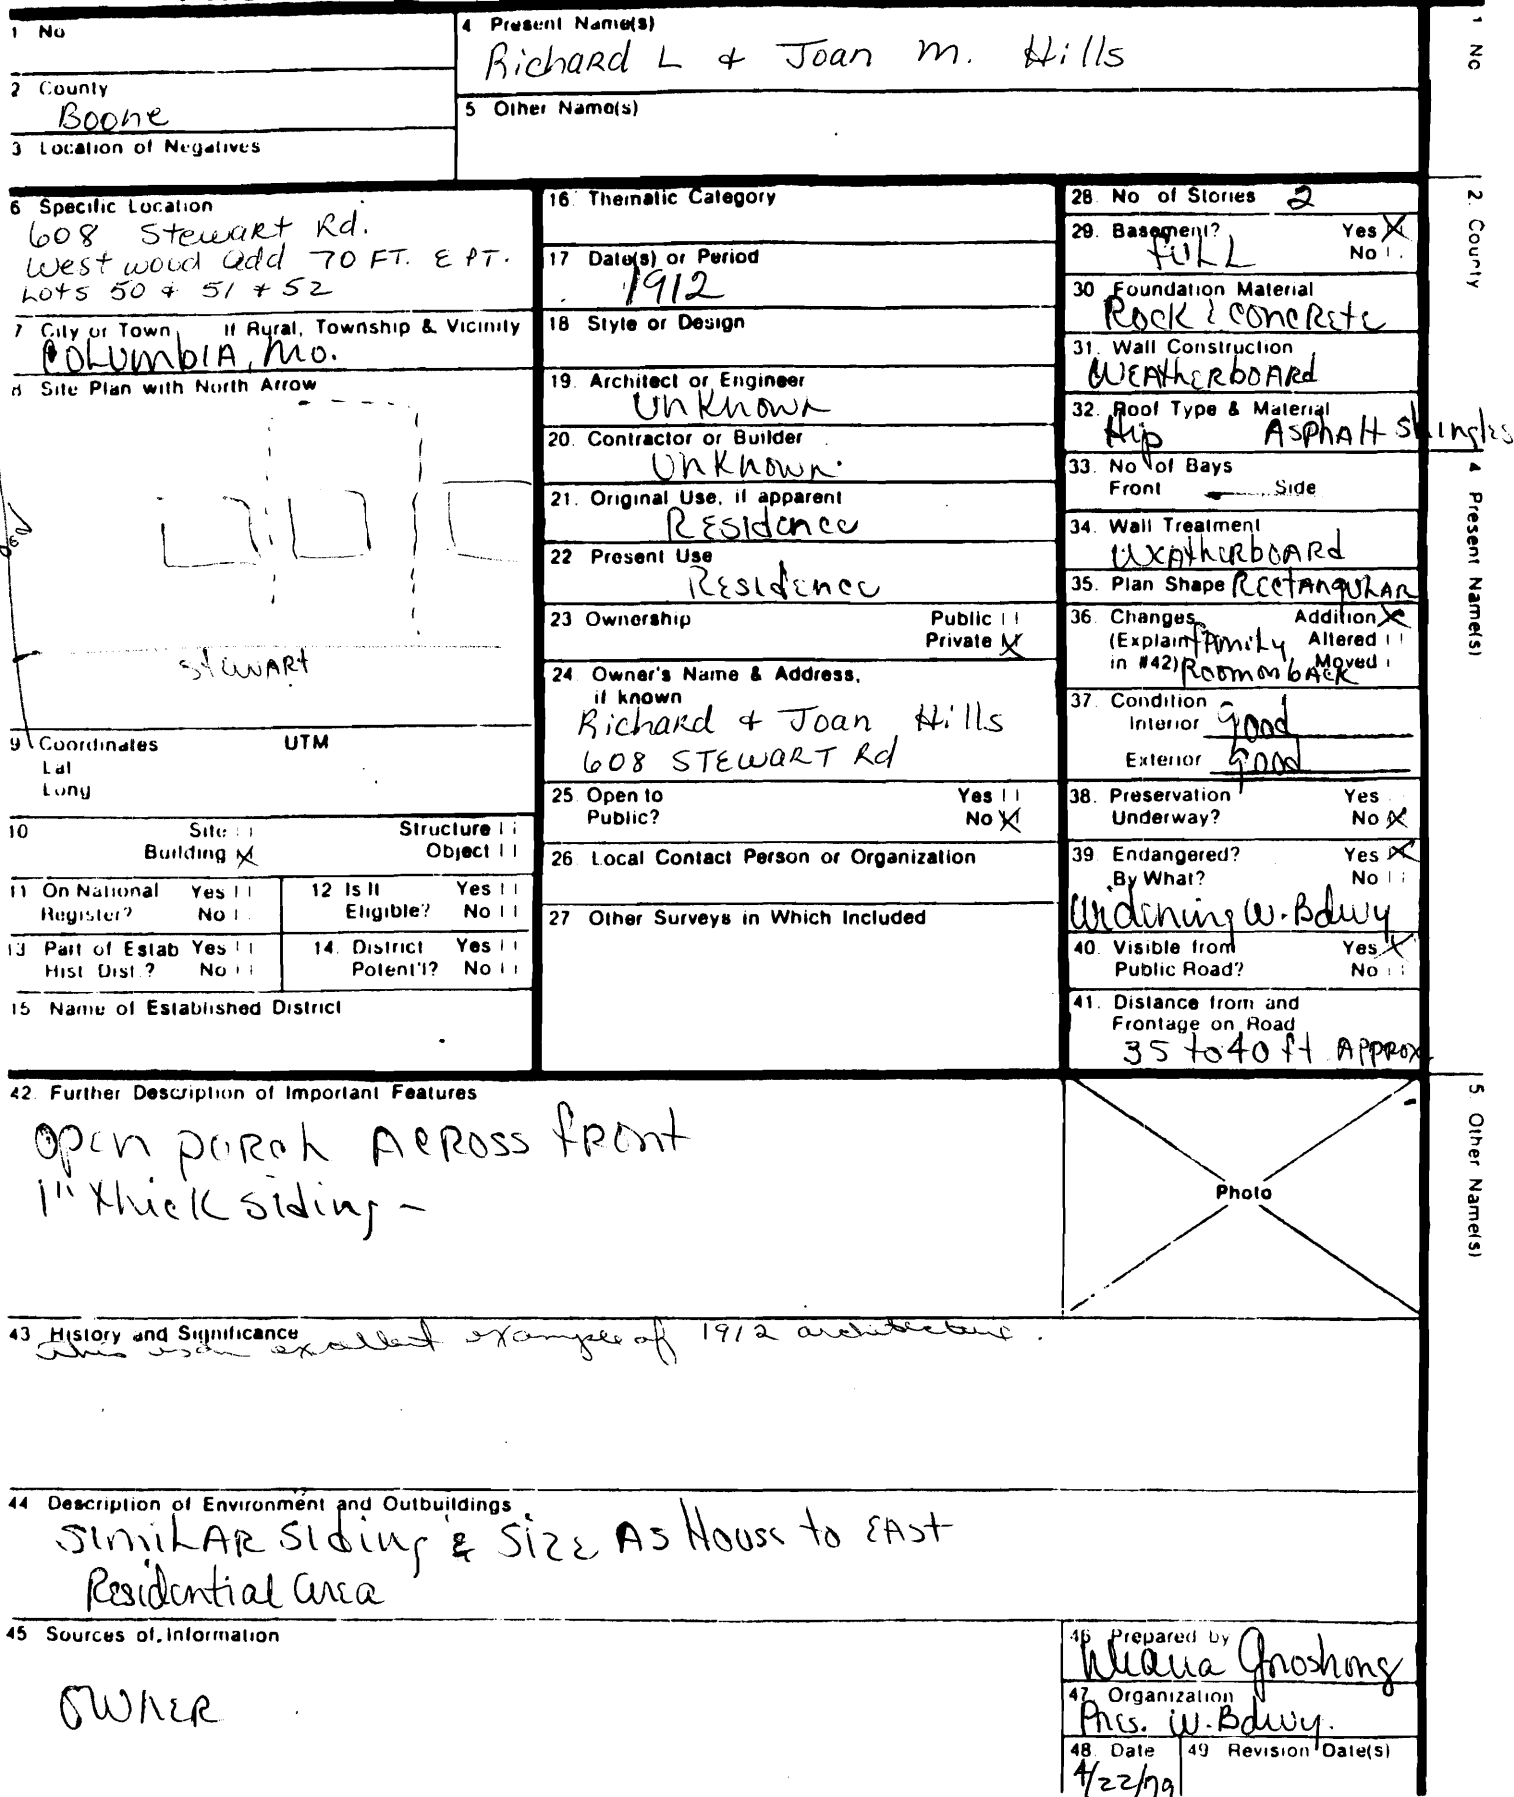 1 No
4 Present Name(s)
Richard L & Joan M. Hills
2 County
Boone
5 Other Name(s)
3 Location of Negatives
6 Specific Location
608 Stewart Rd.
Westwood Add 70 FT. E PT.
Lots 50 & 51 & 52
7 City or Town If Rural, Township & Vicinity
Columbia, Mo.
8 Site Plan with North Arrow
STEWART
9 Coordinates UTM
Lat
Long
10 Site
Structure
Building X
Object
11 On National Register? Yes No
12 Is It Eligible? Yes No
13 Part of Estab Hist Dist.? Yes No
14. District Potent'l? Yes No
15 Name of Established District
16. Thematic Category
17 Date(s) or Period
1912
18 Style or Design
19. Architect or Engineer
Unknown
20. Contractor or Builder
Unknown.
21. Original Use, if apparent
Residence
22 Present Use
Residence
23 Ownership Public
Private X
24. Owner's Name & Address,
if known
Richard & Joan Hills
608 STEWART Rd
25. Open to Yes
Public? No X
26. Local Contact Person or Organization
27 Other Surveys in Which Included
28. No of Stories 2
29. Basement? Yes X
Full No
30 Foundation Material
Rock & concrete
31. Wall Construction
Weatherboard
32. Roof Type & Material
Hip Asphalt Shingles
33. No of Bays
Front Side
34. Wall Treatment
Weatherboard
35. Plan Shape Rectangular
36. Changes Addition X
(Explain Family Altered
in #42) Room on back Moved
37. Condition
Interior good
Exterior good
38. Preservation Yes
Underway? No X
39. Endangered? Yes X
By What? No
Widening W. Bdwy
40. Visible from Yes X
Public Road? No
41. Distance from and
Frontage on Road
35 to 40 ft Approx.
42. Further Description of Important Features
Open porch Across front
1" thick siding -
Photo
43 History and Significance
This is an excellent example of 1912 architecture.
44 Description of Environment and Outbuildings
Similar siding & size As House to East
Residential area
45 Sources of Information
Owner
46 Prepared by
Gnoshong
47 Organization
Pres. W. Bdwy.
48. Date
4/22/79
49 Revision Date(s)
1 No
2. County
4 Present Name(s)
5. Other Name(s)